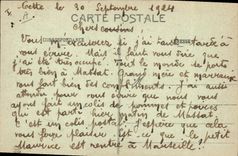 Cette le 30 Septembre 1924
CARTE POSTALE
Chers cousins
Vous m'excuserez si j'ai tant tardé à
vous écrire. Mais il faut vous dire que
j'ai été très occupé. Tout le monde se porte
très bien à Massat. Grand mère et marraine
vous font bien des compliments. J'ai aussi
attendu pour vous écrire que vous
ayant fait un colis de pommes et poires
qui est parti hier matin de Massat.
C'est un colis postal. J'espère que cela
vous fera plaisir. Est-ce que le petit
Maurice est rentré à Marseille?